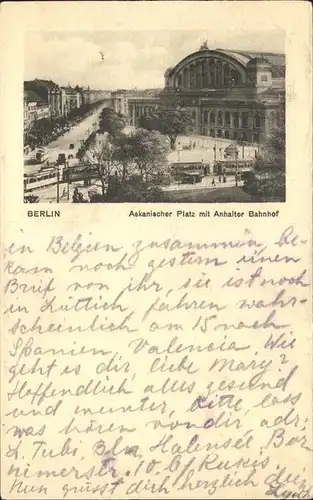 BERLIN
Askanischer Platz mit Anhalter Bahnhof
in Belgien zusammen, be-
kam noch gestern einen
Brief von ihr, sie ist noch
in Lüttich fahren wahr-
scheinlich am 15 nach
Spanien, Valencia. Wie
geht es dir, liebe Mary?
Hoffendlich alles gesund
und munter, bitte, lass
was hören von dir, adr.
Bln, Halensee, Bor
nimerstr. 10.
Nun grüsst dich herzlich dein